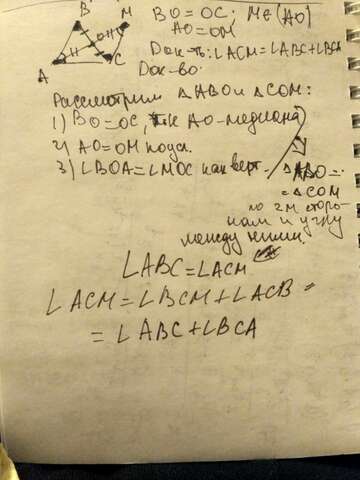 B M
BO = OC; M ∈ (AO)
AO = OM
O
A C
Док-ть: ∠ACM = ∠ABC + ∠BCA
Док-во:
Рассмотрим △ABO и △COM:
1) BO = OC, т.к AO - медиана
2) AO = OM по усл.
3) ∠BOA = ∠MOC как верт.
△ABO =
= △COM
по 2м сторо-
нам и углу
между ними.
∠ABC = ∠ACM
∠ACM = ∠BCM + ∠ACB =
= ∠ABC + ∠BCA